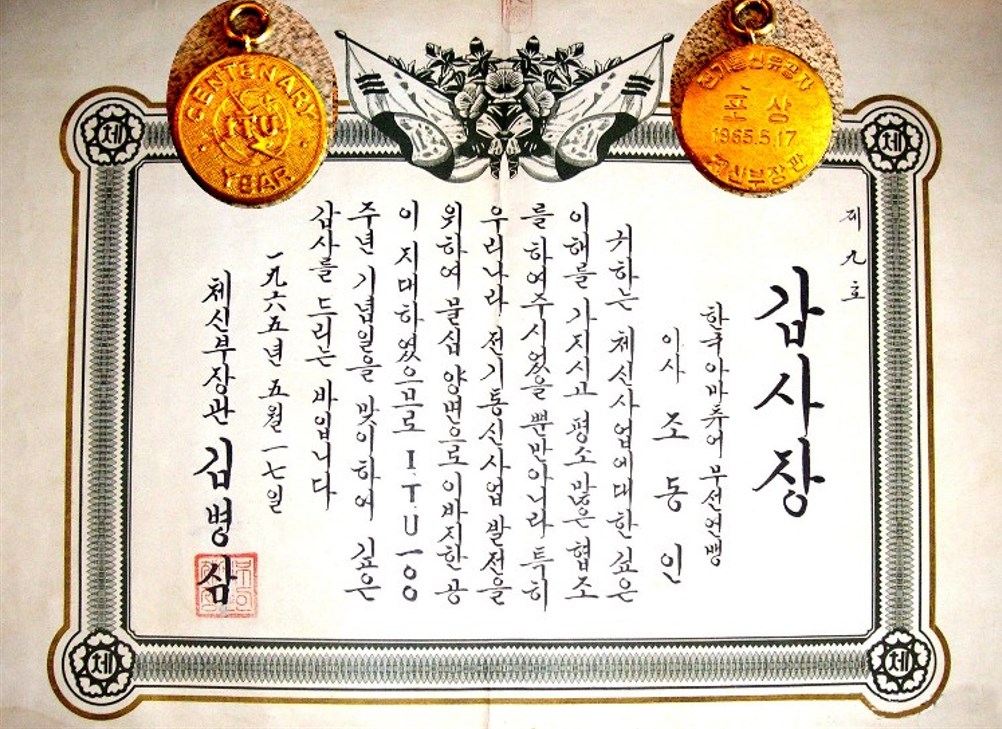 CENTENARY
ITU
YEAR
전기통신유공자
포상
1965.5.17
체신부장관
체
체
제九호
감사장
한국아마튜어무선연맹
이사 조동인
귀하는 체신사업에대한 깊은
이해를 가지시고 평소많은 협조
를 하여주시었을뿐만아니라 특히
우리나라 전기통신사업발전을
위하여 물심 양면으로 이바지한 공
이 지대하였으므로 I.T.U 一〇〇
주년 기념일을 맞이하여 깊은
감사를 드리는 바입니다
一九六五년 五월 一七일
체신부장관 김병삼
체
체